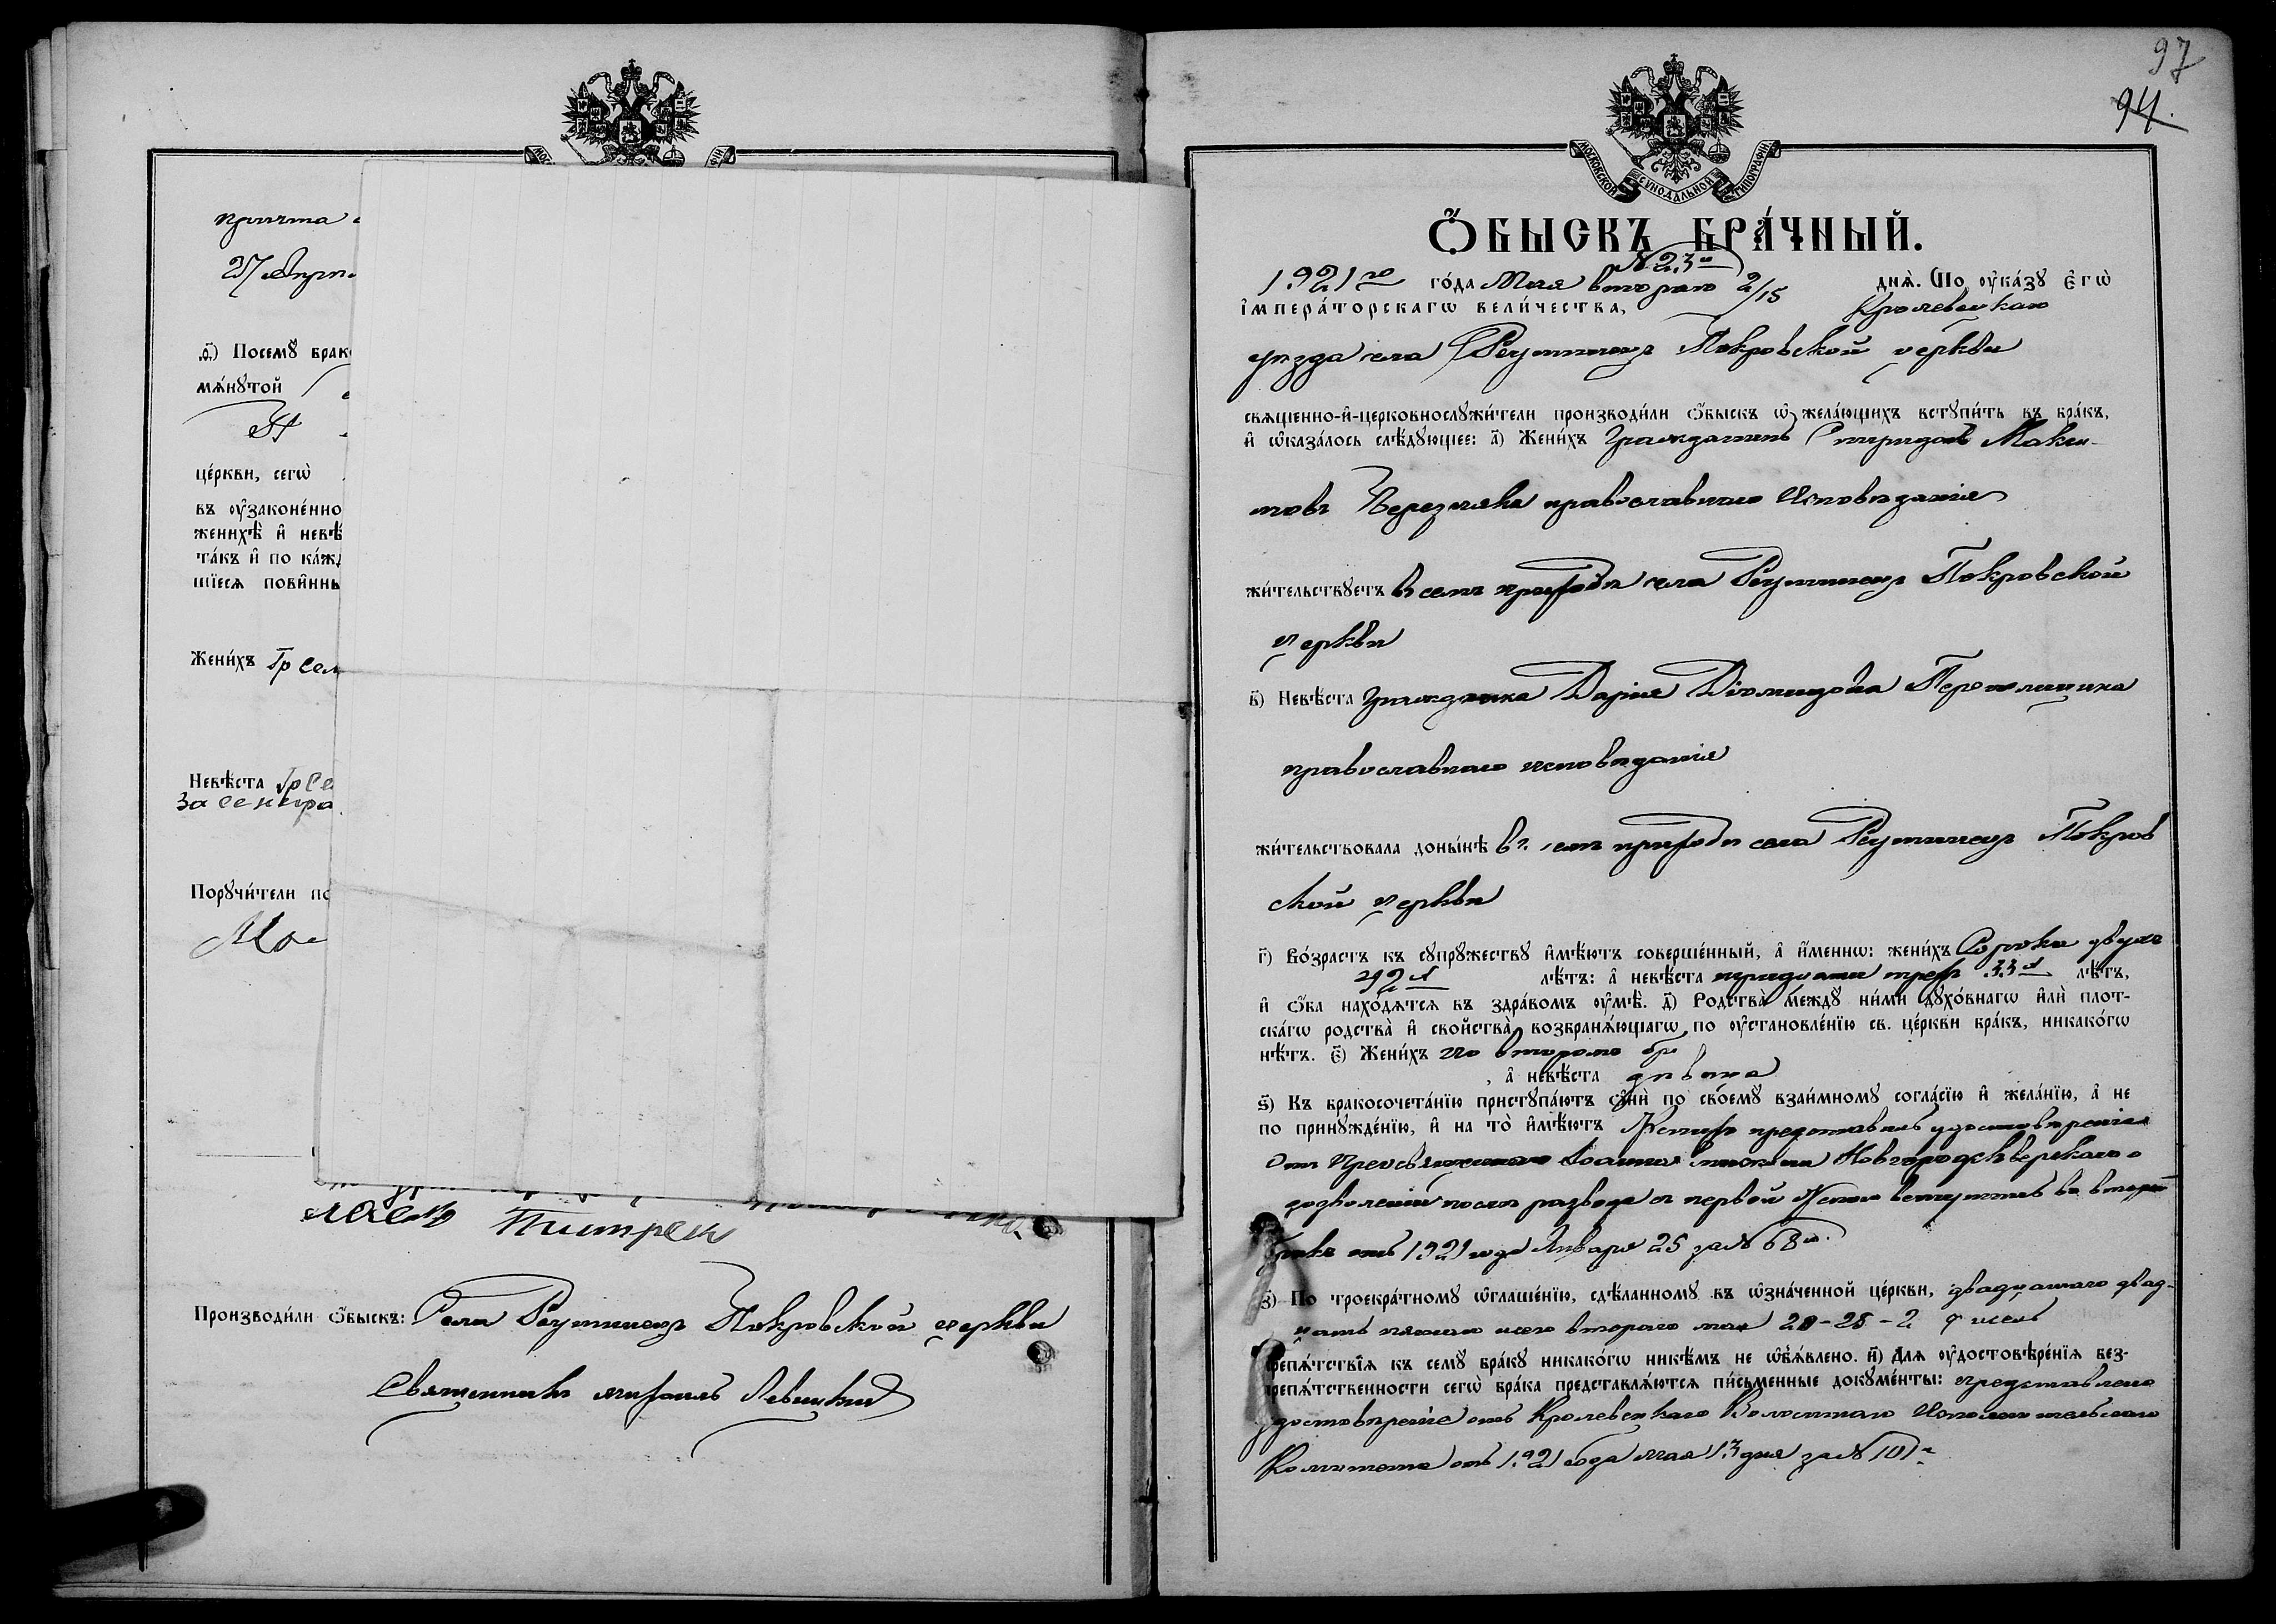 причта
27 Апрѣ
ѳ҃) Посемꙋ брак
мѧ́нꙋтой
це́ркви, сегѡ̀
въ ᲂу҆законе́нно
женихѣ̀ и҆ невѣ́
та́къ и҆ по ка́ж
шїесѧ пови́нны
Жени́хъ Гр Сел
Невѣ́ста Гр Се
За се негра
Порꙋчи́тели по
Производи́ли ѻ҆́быскъ: Села Реутинецъ Покровской церкви
Священникъ Михаилъ Левицкий
97
94.
МОСКОВСКОЙ СѴНОДАЛЬНОЙ ТИПОГРАФІИ
Ѻ҆́БЫСКЪ БРА́ЧНЫЙ.
№ 23й
1921го го́да Мая второго 2/15 днѧ̀. По ᲂу҆ка́зꙋ Є҆гѡ̀
І҆мпера́торскагѡ вели́чества, Кролевецкаго
уѣзда села Реутинецъ Покровской церкви
свѧще́нно-и҆-церковнослꙋжи́тели производи́ли ѻ҆́быскъ ѡ҆ жела́ющихъ встꙋпи́ть въ бра́къ,
и҆ ѡ҆каза́лось слѣ́дꙋющее: а҃) Жени́хъ Гражданинъ Спиридонъ Маки-
товъ Березняка православнаго Исповѣданія
жи́тельствꙋетъ въ семъ приходѣ села Реутинецъ Покровской
церкви
в҃) Невѣ́ста Гражданка Дарія Діомидова
православнаго исповѣданія
жи́тельствовала доны́нѣ въ семъ приходѣ села Реутинецъ Покров
ской церкви
г҃) Во́зрастъ къ сꙋпрꙋ́жествꙋ и҆мѣ́ютъ соверше́нный, а҆ и҆́меннѡ: жени́хъ Сорока двухъ
42 л лѣ́тъ: а҆ невѣ́ста тридцати трехъ 33 л лѣ́тъ,
и҆ ѻ҆́ба нахо́дѧтсѧ въ здра́вомъ ᲂу҆мѣ̀. д҃) Родства̀ междꙋ ни́ми дꙋхо́внагѡ и҆лѝ плот-
ска́гѡ родства̀ и҆ сво́йства̀, возбранѧ́ющагѡ, по ᲂу҆становле́нїю св. це́ркви бра́къ, никако́гѡ
нѣ́тъ. є҃) Жени́хъ по второмъ бр
, а҆ невѣ́ста дѣвица
ѕ҃) Къ бракосочета́нїю пристꙋпа́ютъ ѻ҆нѝ по своемꙋ̀ взаи́мномꙋ согла́сїю и҆ жела́нїю, а҆ не
по принꙋжде́нїю, и҆ на то̀ и҆мѣ́ютъ Женихъ представилъ удостовѣреніе
Отъ Преосвященнаго Іоанна Епископа Новгородсѣверскаго о
дозволеніи послѣ развода съ первой женою вступить во второй
бракъ отъ 1921 года Января 25 за № 68м.
з҃) По троекра́тномꙋ ѡ҆глаше́нїю, сдѣ́ланномꙋ въ ѡ҆зна́ченной це́ркви, двадцатаго двад-
цать пятаго и сего второго мая 20-25-2 чиселъ
препѧ́тствїѧ къ семꙋ̀ бра́кꙋ никако́гѡ никѣ́мъ не ѡ҆б̾ѧ́влено. и҃) Длѧ ᲂу҆достовѣре́нїѧ без-
препѧ́тственности сегѡ̀ бра́ка представлѧ́ютсѧ пи́сьменные докꙋме́нты: представлено
удостовѣреніе отъ Кролевецкаго Волостнаго Исполнительнаго
Комитета отъ 1921 года мая 13 дня за № 101м